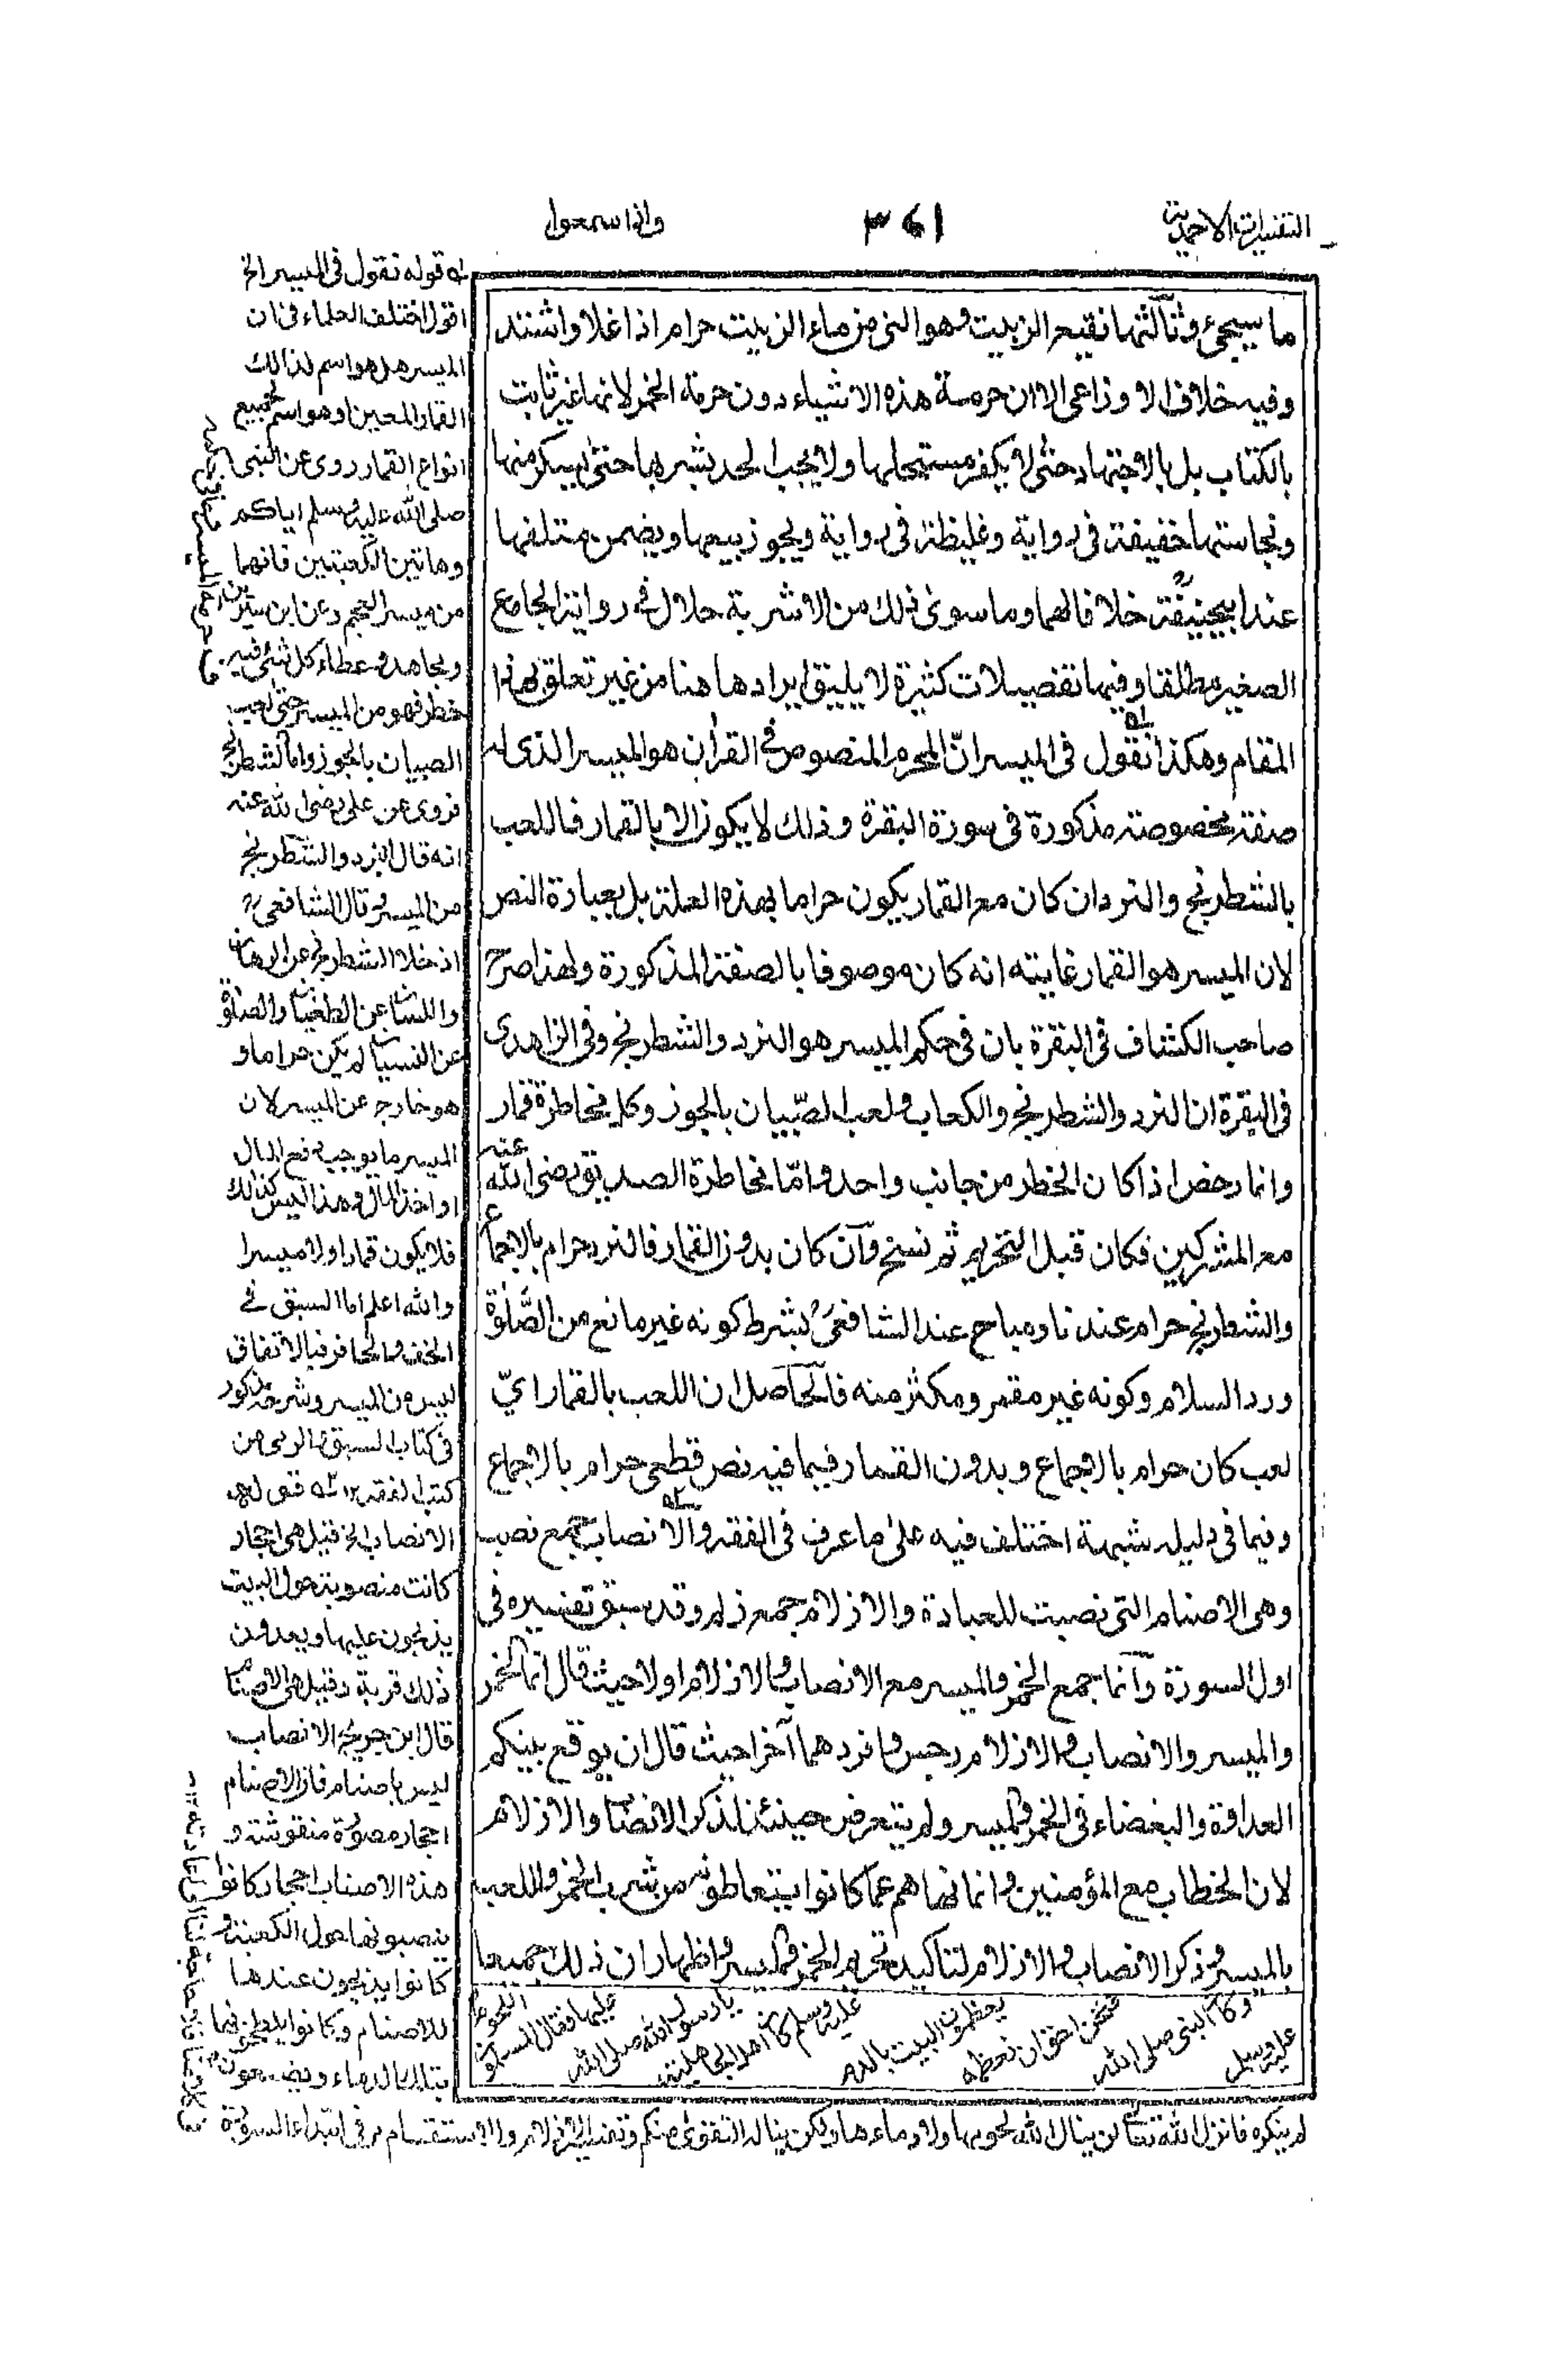 التفسيرات الاحمدية
٣٦١
واذا سمعوا
ما سيجيء وثالثتها نقيع الزبيب وهو الني من ماء الزبيب حرام اذا غلا واشتد
وفيه خلاف الاوزاعي الا ان حرمة هذه الاشياء دون حرمة الخمر لانها غير ثابت
بالكتاب بل بالاجتهاد حتى لا يكفر مستحلها ولا يجب الحد بشربها حتى يسكر منها
ونجاستها خفيفة في رواية وغليظة في رواية ويجوز بيعها ويضمن متلفها
عند ابيحنيفةؒ خلافا لهما وما سوى ذلك من الاشربة حلال في رواية الجامع
الصغير مطلقا وفيها تفصيلات كثيرة لا يليق ايرادها هنا من غير تعلق بهذا
المقام وهكذا نقول في الميسر انّ المحرم المنصوص في القرآن هو الميسر الذي له
صفة مخصوصة مذكورة في سورة البقرة وذلك لا يكون الا بالقمار فاللعب
بالشطرنج والنرد ان كان مع القمار يكون حراما بهذه العلة بل بعبارة النص
لان الميسر هو القمار غايته انه كان موصوفا بالصفة المذكورة ولهذا صرح
صاحب الكشاف في البقرة بان في حكم الميسر هو النرد والشطرنج وفي الزاهدي
في البقرة ان النرد والشطرنج والكعاب ولعب الصّبيان بالجوز وكل مخاطرة قمار
وانما رخص اذا كان الخطر من جانب واحد وامّا مخاطرة الصديق رضى الله عنه
مع المشركين فكان قبل التحريم ثم نسخ وان كان بدون القمار فالنرد حرام بالاجماع
والشطرنج حرام عندنا ومباح عند الشافعيؒ بشرط كونه غير مانع من الصّلوة
ورد السلام وكونه غير مقمر ومكثر منه فالحاصل ان اللعب بالقمار ايّ
لعب كان حرام بالاجماع وبدون القمار فيما فيه نص قطعي حرام بالاجماع
وفيما في دليله شبهة اختلف فيه على ما عرف في الفقه والانصاب جمع نصب
وهي الاصنام التي نصبت للعبادة والازلام جمع زلم وقد سبق تفسيره في
اول السورة وانما جمع الخمر والميسر مع الانصاب والازلام اولا حيث قال انما الخمر
والميسر والانصاب والازلام رجس وافردهما آخرا حيث قال ان يوقع بينكم
العداوة والبغضاء في الخمر والميسر ولم يتعرض حينئذ لذكر الانصاب والازلام
لان الخطاب مع المؤمنين وانما نهاهم عما كانوا يتعاطونه من شرب الخمر واللعب
بالميسر وذكر الانصاب والازلام لتاكيد تحريم الخمر والميسر واظهار ان ذلك جميعا
له قوله نقول في الميسر الخ
اقول اختلف العلماء في ان
الميسر هل هو اسم لذالك
القمار المعين او هو اسم لجميع
انواع القمار روى عن النبي
صلى الله عليه وسلم اياكم
وهاتين الكعبتين فانهما
من ميسر العجم وعن ابن سيرين
ومجاهد وعطاء كل شئ فيه
خطر فهو من الميسر حتى لعب
الصبيان بالجوز واما الشطرنج
فروى عن علي رضى الله عنه
انه قال النرد والشطرنج
من الميسر وقال الشافعيؒ
اذ خلا الشطرنج عن الرهان
واللسان عن الطغيان والصلوة
عن النسيان لم يكن حراما و
هو خارج عن الميسر لان
الميسر ما يوجب دفع المال
او اخذ المال وهذا ليس كذالك
فلا يكون قمارا ولا ميسرا
والله اعلم اما السبق في
الخف والحافر فبالاتفاق
ليس من الميسر وشرحه مذكور
في كتاب السبق والرمي من
كتب الفقه ١٢ ٢ه قوله
الانصاب الخ قيل هي احجار
كانت منصوبة حول البيت
يذبحون عليها ويعدون
ذلك قربة وقيل هي الاصنام
قال ابن جريج الانصاب
ليس باصنام فان الاصنام
احجار مصورة منقوشة و
هذه الانصاب احجار كانوا
ينصبونها حول الكعبة و
كانوا يذبحون عندها
للاصنام وكانوا يلطخونها
بتلك الدماء ويضعون
اللحوم
عليها فقال المسلمون
يا رسول الله صلى الله
عليه وسلم كان اهل الجاهلية
يعظمون البيت بالدم
فنحن احق ان نعظمه
وكان النبي صلى الله
عليه وسلم
لم ينكره فانزل الله تعالى لن ينال الله لحومها ولا دماءها ولكن يناله التقوى منكم وتفسير الازلام والاستقسام مر في ابتداء السورة